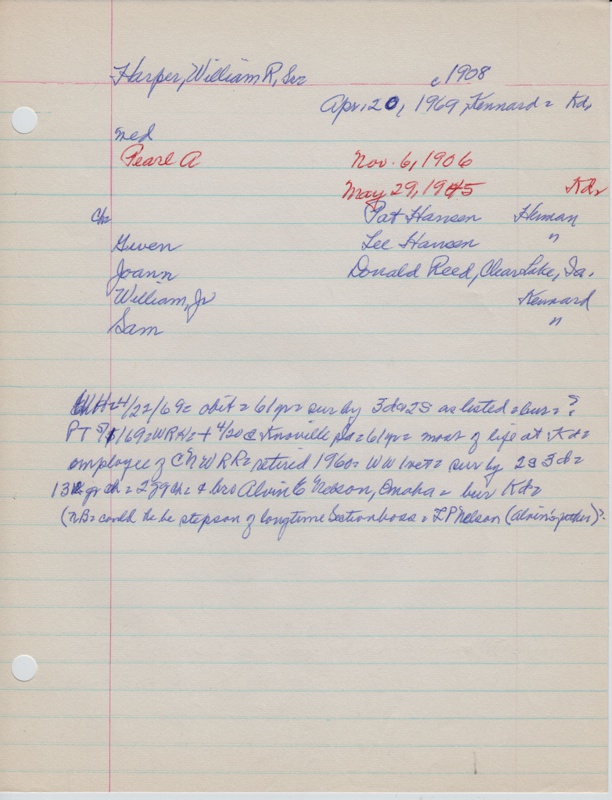 Harper, William R, Sr= c1908
Apr. 20, 1969, Kennard = Kd=
med
Pearl A Nov. 6, 1906
May 29, 1945 Kd=
ch= Pat Hansen Herman
Gwen Lee Hansen "
Joann Donald Reed, Clear Lake, Ia.
William, Jr Kennard
Sam "
4/22/69= obit= 61 yr= sur by 3d&2S as listed= bur= ?
PT 5/1/69=WRH=+ 4/20 @ Knoxville Ia=61yr= most of life at Kd=
employee of CNWRR= retired 1960= WW vet= sur by 2s 3d=
13 gr ch= 2 ggch= & bro Alvin E Nelson, Omaha= bur Kd=
(NB= could he be stepson of longtime Section boss= L P Nelson (Alvin's father)?